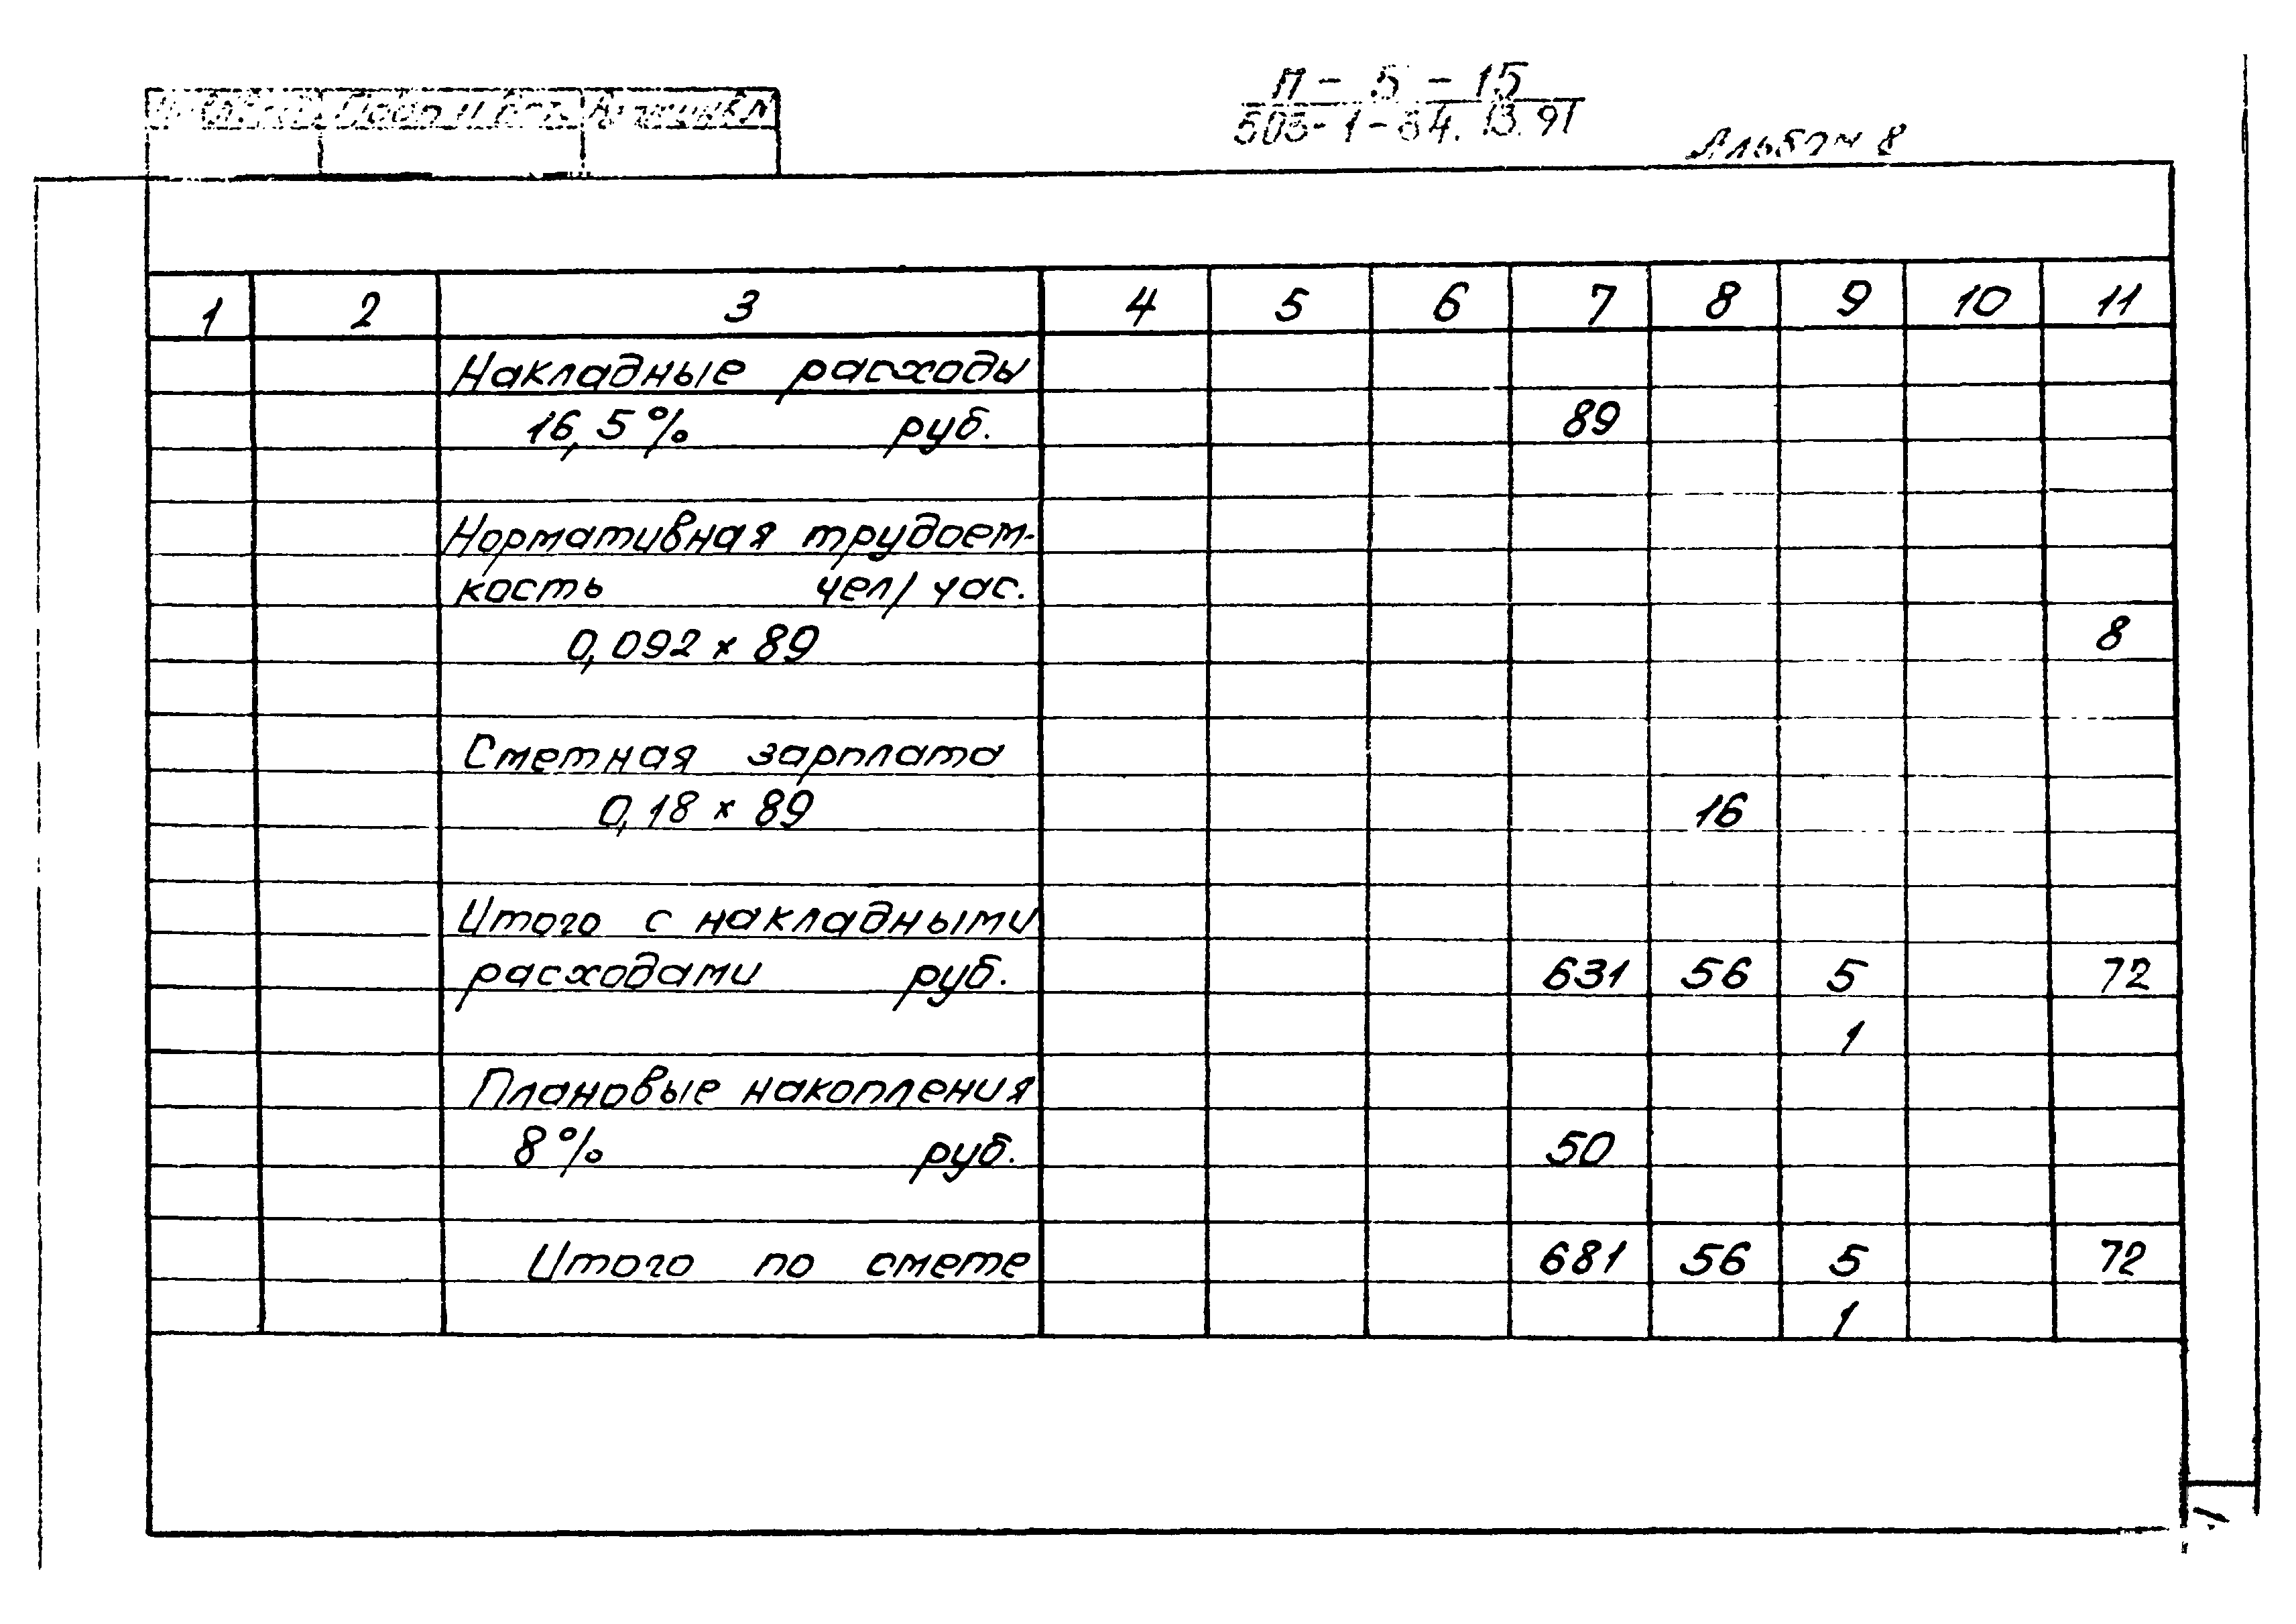 п - 5 - 15
503-1-64.13.91
Альбом 8
1 2 3 4 5 6 7 8 9 10 11
Накладные расходы
16,5% руб. 89
Нормативная трудоем-
кость чел/час.
0,092 × 89 8
Сметная зарплата
0,18 × 89 16
Итого с накладными
расходами руб. 631 56 5 72
1
Плановые накопления
8% руб. 50
Итого по смете 681 56 5 72
1